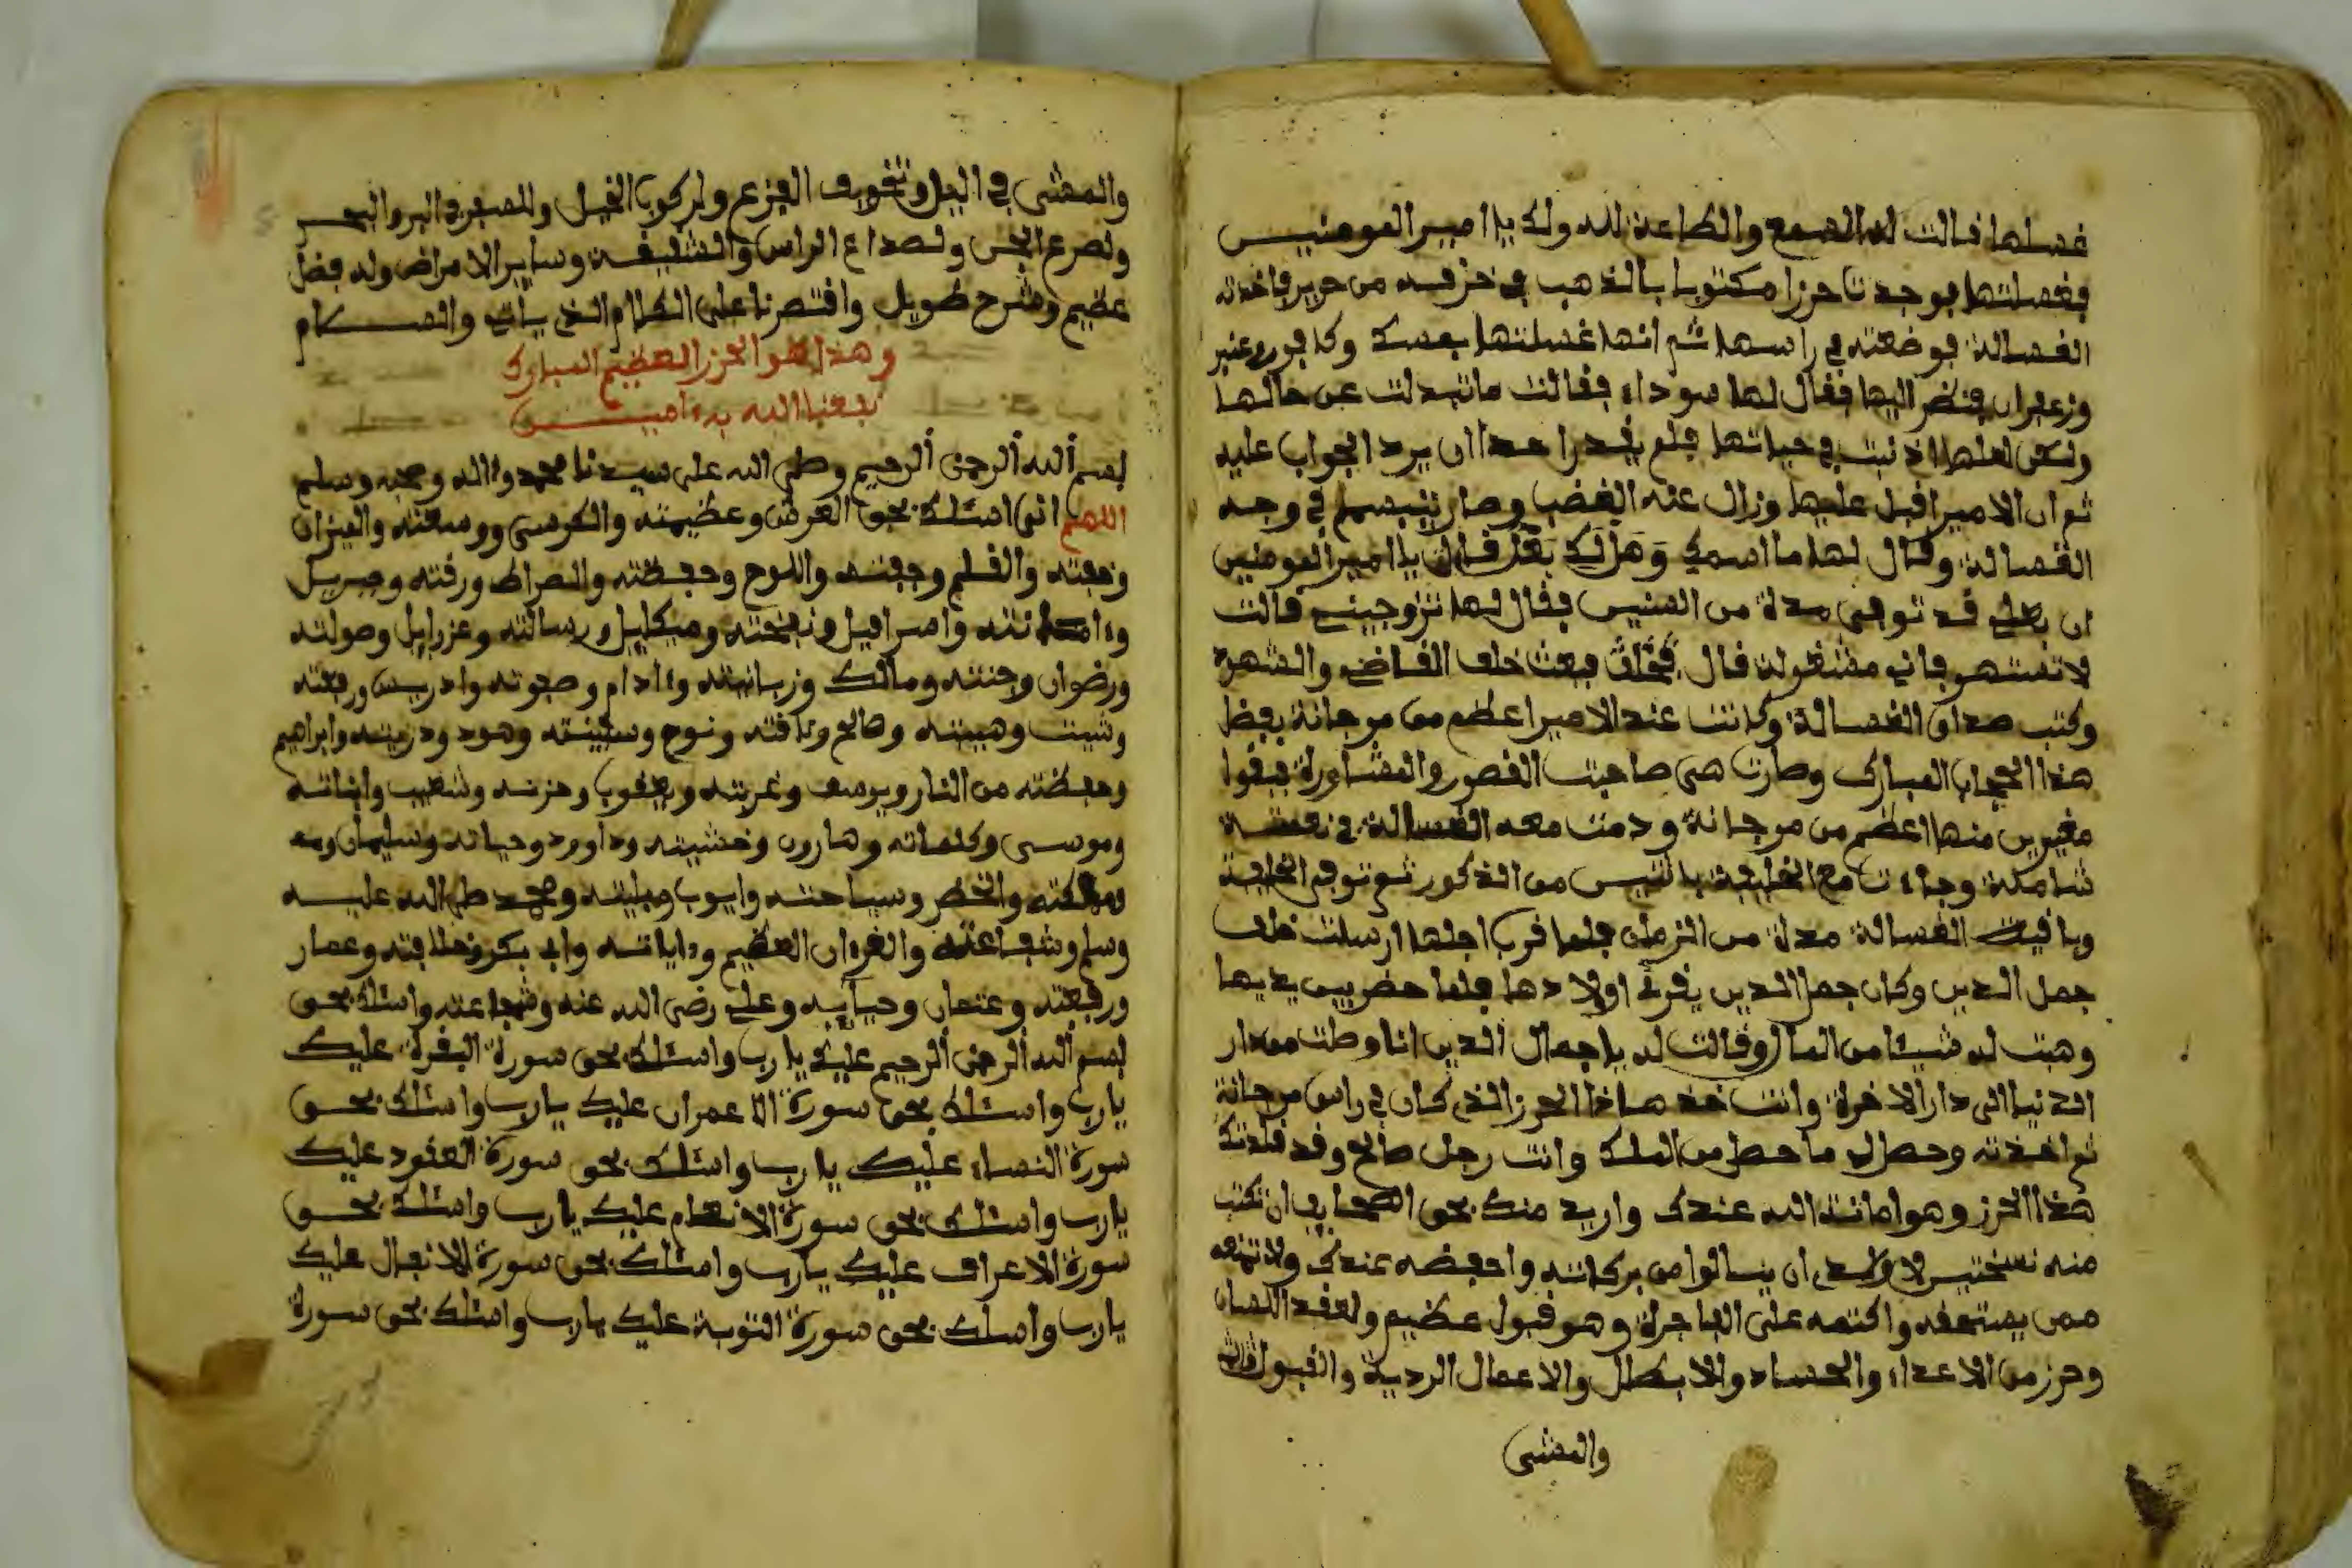 غسلها فالت له السمع والطاعة لله ولك يا امير المومنيـن
فغسلتها فوجدت حرزا مكتوبا بالذهب في خرفه من حرير فاخذته
الغسالة فوضعته في راسها ثم انها غسلتها بمسك وكافور وعنبر
وزعفران فنظر اليها ففال لها سوداء ففالت ماتبدلت عن حالها
ولكن لعلها اذنبت في حياتها فلم يفدر احدا ان يرد الجواب عليه
ثم ان الامير افبل عليها وزال عنه الغضب وصار يتبسم في وجه
الغسالة وفال لها ما اسمك وهل لك بعل فالت يا امير المومنين
ان بعلي فد توفى مدة من السنين ففال لها تزوجيني فالت
لا تستهز فاني مشغولة فال فبعث خلف الفاضي والشهود
وكتب صداق الغسالة وكانت عند الامير اعظم من مرجانة بفضل
هذا الحجاب المبارك وصارت هي صاحبت الفصور والمشاورة فبفوا
مغيرين منها اعظم من مرجانة ودمت معه الغسالة في نعمـة
شاملة وجاءت مع الخليفة باثنين من الذكور ثم توفي الخليفة
وبافيت الغسالة مدة من الزمان فلما فرب اجلها ارسلت خلف
جمل الدين وكان جمل الدين يفرئ اولادها فلما حضر بين يديها
وهبت له شيئا من المال وفالت له يا جمال الدين انا وصلت من دار
الدنيا الى دار الاخرة وانت خذ هاذا الحرز الذي كان في راس مرجانة
ثم اخذته وحصل لي ما حصل من الملك وانت رجل صالح وفد فلدتك
هذا الحرز وهو امانت الله عندك واريد منك بحق الصحابة ان تكتب
منه نسختين لاولادي ان ينالوا من بركاته واحفظه عندك ولا تمنعه
ممن يستحفه واكتمه على الفاجرة وهو فبول عظيم ولعفد اللسان
وحرز من الاعداء والحساد والابطال والاعمال الردية والفبول
والمشي
والمشي في اليل وتخويف الفزع ولركوب الخيل والسفر في البر والبحـر
ولصرع الجن ولصداع الراس والشفيفـة وساير الامراض وله فضل
عظيم وشرح طويل وافتصرنا على الكلام الذي ياتي والســـلام
وهذا هو الحرز العظيم المبارك
نفعنا الله به ءاميـــن
بسم الله الرحمن الرحيم وصلى الله على سيدنا محمد وءاله وصحبه وسلم
اللهم اني اسئلك بحق العرش وعظيمته والكرسي ووسعته والميزان
وخفته والفلم وجفتـه واللوح وحفظته والصراط ورفته وجبريـل
وءامانته واسرافيل ونفخته وميكايل ورسالته وعزرايل وصولته
ورضوان وجنته ومالك وزبانيته وءادام وصفوته وادريس ورفعته
وشيت وهيبته وصالح ونافته ونوح وسفينته وهود وذريتـه وابراهيم
وحفظته من النار ويوسف وغربته ويعفوب وحزنـه وشعيب
وموسى وكلماته وهارون وخشيته وداوود وحياته وسليمان
ومملكته والخضر وسياحتـه وايوب وبليته ومحمد صلى الله عليـه
وسلم وشفاعته والفرءان العظيم وءاياتـه وابي بكر وخلافته وعمار
ورفعته وعثمان وحيايـه وعلي رضي الله عنه وشجاعته واسئلك بحق
بسم الله الرحمن الرحيم عليك يا رب واسئلك بحق سورة البفرة عليك
يا رب واسئلك بحق سورة ال عمران عليك يا رب واسئلك بحـق
سورة النساء عليك يا رب واسئلك بحق سورة العفود عليك
يا رب واسئلك بحق سورة الانعام عليك يا رب واسئلك بحـق
سورة الاعراف عليك يا رب واسئلك بحق سورة الانفال عليك
يا رب واسلك بحق سورة التوبة عليك يا رب واسئلك بحق سورة